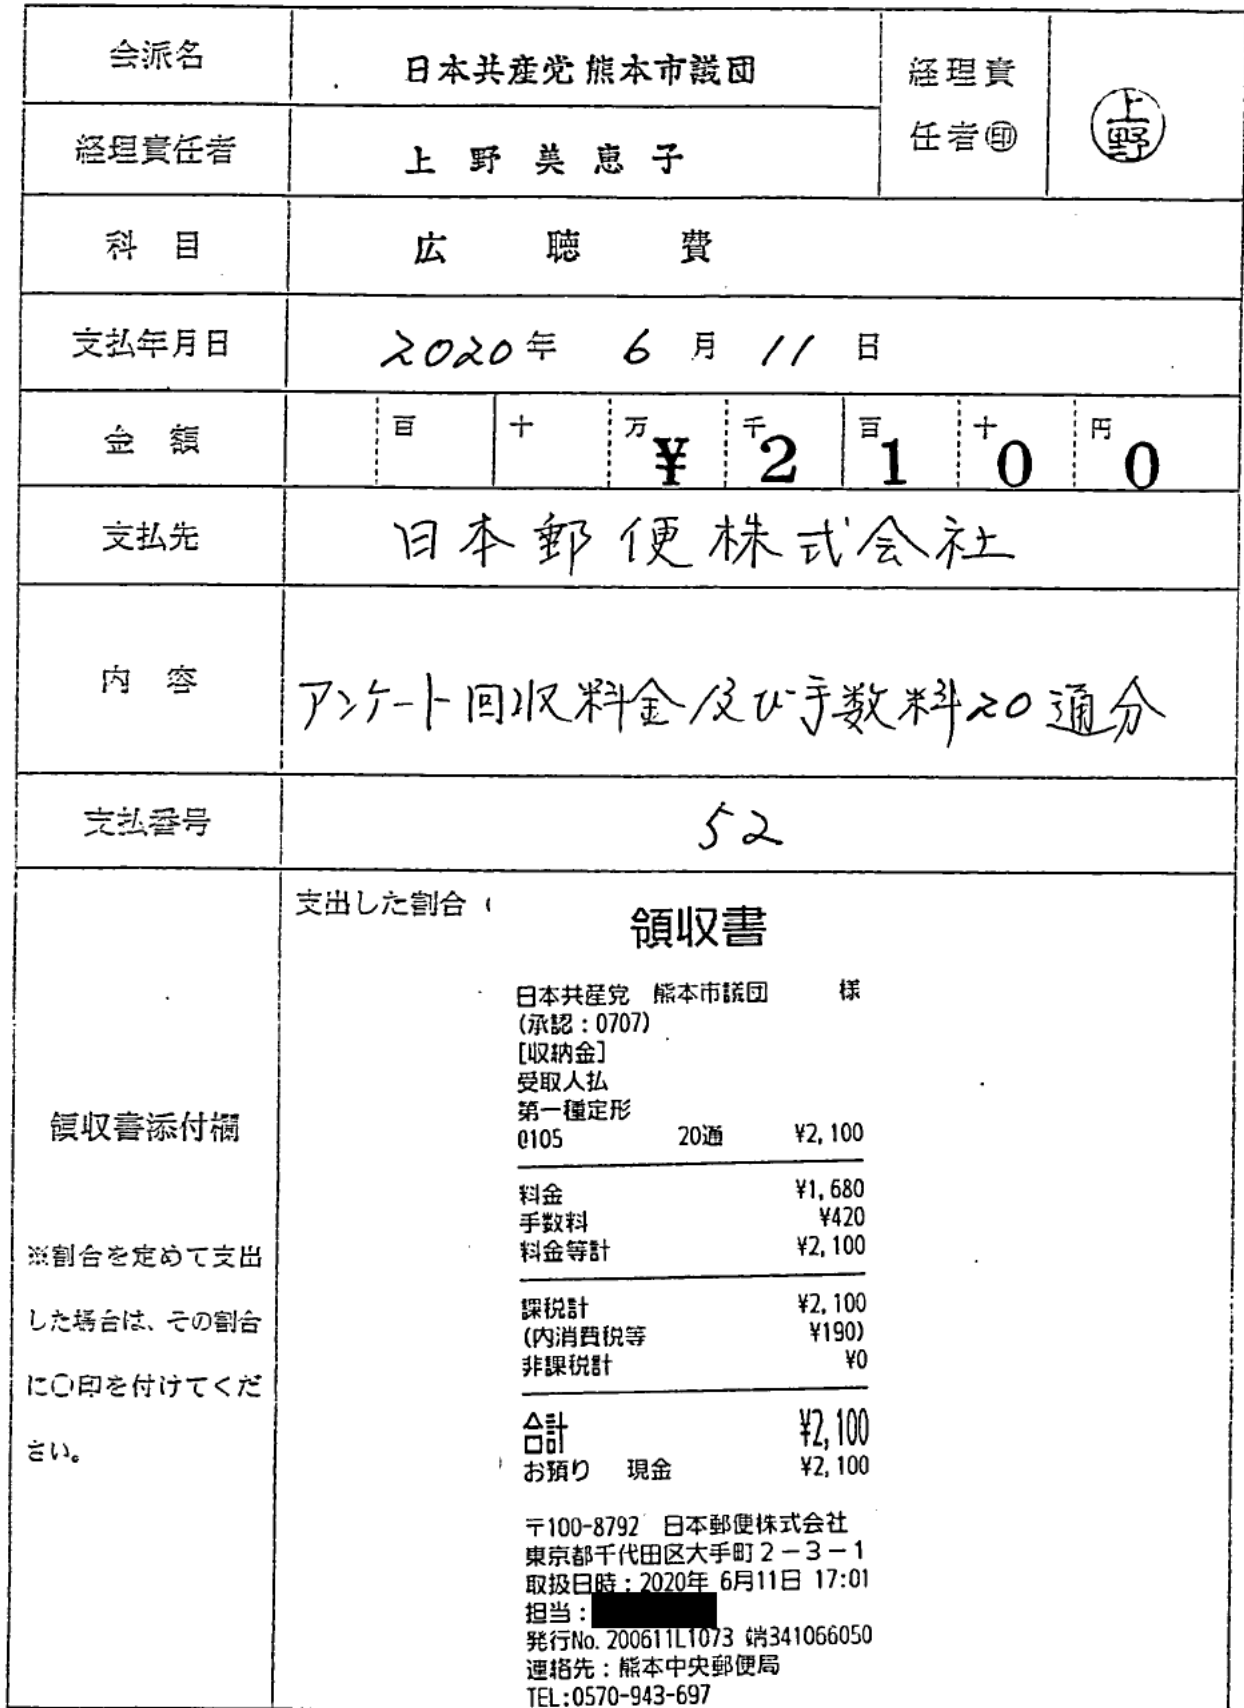 会派名 日本共産党 熊本市議団
経理責任者㊞ 上野
経理責任者 上野美恵子
科目 広聴費
支払年月日 2020年 6月 11日
金額 百 十 万 ¥ 千 2 百 1 十 0 円 0
支払先 日本郵便株式会社
内容 アンケート回収料金及び手数料20通分
支払番号 52
領収書添付欄
※割合を定めて支出
した場合は、その割合
に〇印を付けてくだ
さい。
支出した割合 (
領収書
日本共産党 熊本市議団 様
(承認:0707)
[収納金]
受取人払
第一種定形
@105 20通 ¥2,100
料金 ¥1,680
手数料 ¥420
料金等計 ¥2,100
課税計 ¥2,100
(内消費税等 ¥190)
非課税計 ¥0
合計 ¥2,100
お預り 現金 ¥2,100
〒100-8792 日本郵便株式会社
東京都千代田区大手町2-3-1
取扱日時:2020年 6月11日 17:01
担当:
発行No.200611L1073 端341066050
連絡先:熊本中央郵便局
TEL:0570-943-697